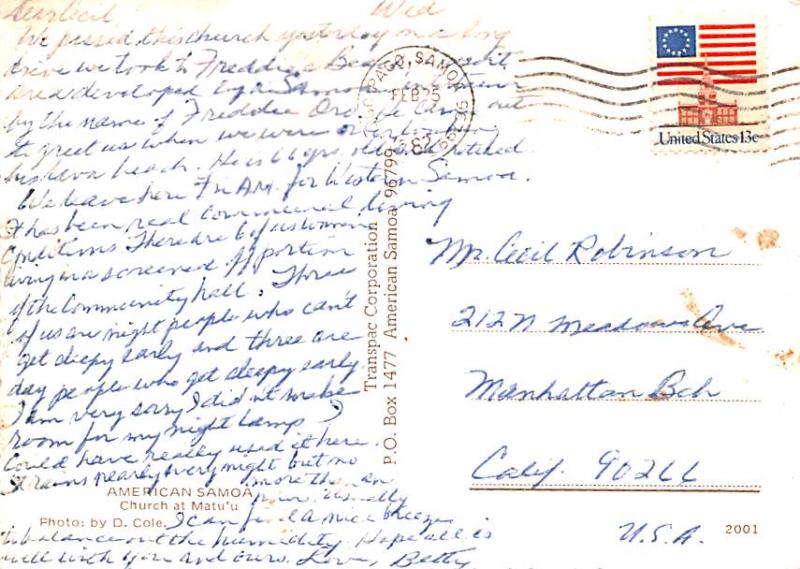 Dear Cecil Wed
We passed this church yesterday on a long
drive we took to Freddie's Beach,
area developed by a Samoan
by the name of Freddie He came out
to greet us when we were
his lava beach. He is 66 yrs. old
We leave here Fri A.M. for Western Samoa.
It has been real communal living
Conditions. There are 6 of us women
living in a screened off portion
of the Community hall. Three
of us are night people who can't
get sleepy early and three are
day people who get sleepy early.
I am very sorry I didn't make
room for my night lamp I
Could have really used it here.
It rains nearly every night but no
more than an
hour. Usually
I can find a nice breeze
to balance out the humidity. Hope all is
well with you and yours. Love, Betty
AMERICAN SAMOA
Church at Matu'u
Photo: by D. Cole.
Transpac Corporation
P.O. Box 1477 American Samoa 96799
PAGO PAGO, SAMOA
FEB 25
United States 13c
Mr. Cecil Robinson
212 N Meadows Ave
Manhattan Bch
Calif. 90266
U.S.A.
2001